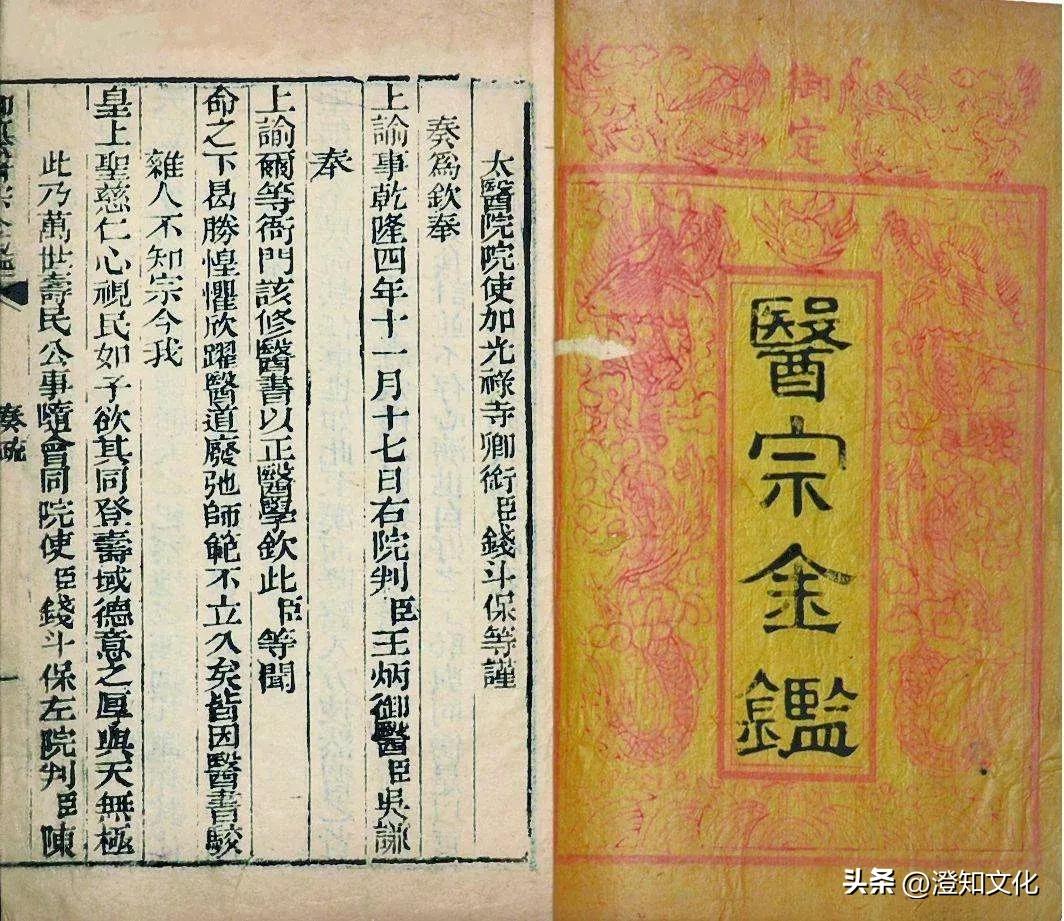 御定
醫宗金鑑
太醫院院使加光祿寺卿銜臣錢斗保等謹
奏爲欽奉
上諭事乾隆四年十一月十七日右院判臣王炳御醫臣吳謙
奉
上諭爾等衙門該修醫書以正醫學欽此臣等聞
命之下曷勝惶懼欣躍醫道廢弛師範不立久矣皆因醫書駁
雜人不知宗今我
皇上聖慈仁心視民如子欲其同登壽域德意之厚與天無極
此乃萬世壽民公事隨會同院使臣錢斗保左院判臣陳
奏疏
一
头条 @澄知文化